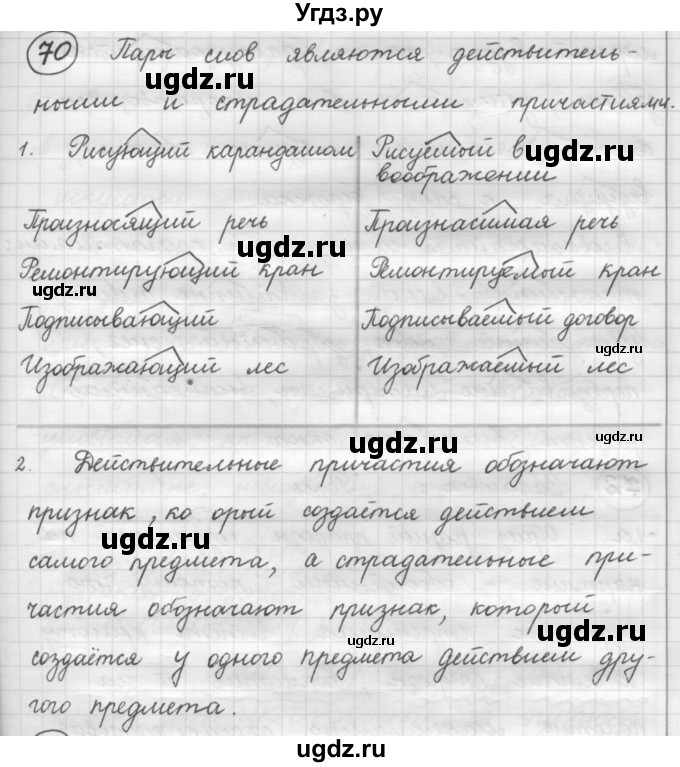 Угдз.ру
70 Пары слов являются действитель-
ными и страдательными причастиями.
1. Рисующий карандашом Рисуемый в
воображении
Произносящий речь Произнасимая речь
Ремонтирующий кран Ремонтируемый кран
Подписывающий Подписываемый договор
Изображающий лес Изображаемый лес
2. Действительные причастия обозначают
признак, ко орый создаётся действием
самого предмета, а страдательные при-
частия обозначают признак, который
создаётся у одного предмета действием дру-
гого предмета.
ugdz.ru
ugdz.ru
ugdz.ru
ugdz.ru
ugdz.ru
ugdz.ru
ugdz.ru
ugdz.ru
ugdz.ru
ugdz.ru
ugdz.ru